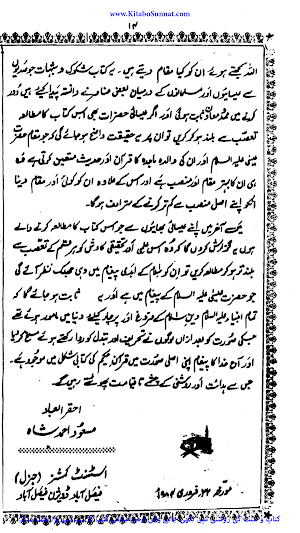 www.KitaboSunnat.com
۱۴
اللہ سمجھتے ہوئے ان کو کیا مقام دیتے ہیں۔ یہ کتاب شکوک و شبہات جو صدیوں
سے عیسائیوں اور مسلمانوں کے درمیان بعض عناصر نے دانستہ پیدا کیے ہیں دور
کرنے میں ممد و معاون ثابت ہوگی اور اگر عیسائی حضرات بھی اس کتاب کا مطالعہ
تعصب سے بلند ہو کر کریں تو ان پر یہ حقیقت واضح ہو جائے گی کہ جو مقام حضرت
عیسیٰ علیہ السلام اور ان کی والدہ ماجدہ کا قرآن اور حدیث متعین کرتی ہے وہ
ہی ان کا بہتر مقام اور منصب ہے اور اس کے علاوہ ان کو کوئی اور مقام دینا
انکو اپنے اصل منصب سے کم تر کرنے کے مترادف ہوگا۔
میں آخر میں اپنے عیسائی بھائیوں سے جو اس کتاب کا مطالعہ کرنے والے
ہوں یہ گزارش کروں گا کہ وہ اس علمی اور تحقیقی کاوش کو ہر قسم کے تعصب سے
بلند تر ہو کر مطالعہ کریں تو ان کو اسلام کے ابدی پیغام میں وہی جھلک نظر آئے گی
جو حضرت عیسیٰ علیہ السلام کے پیغام میں ہے اور یہ ثابت ہو جائے گا کہ
تمام انبیاء علیہم السلام دین اسلام کے فروغ اور پرچار کیلئے دنیا میں مامور ہوئے تھے
جسکی صورت کو بعد ازاں لوگوں نے تحریف اور تبدل کو روا رکھتے ہوئے مسخ کر لیا
اور آج خدا کا پیغام اپنی اصلی صورت میں قرآن حکیم کی کتابی شکل میں موجود ہے۔
جس سے ہدایت اور روشنی کے چشمے تا قیامت پھوٹتے رہیں گے۔
احقر العباد
مسعود احمد شاہ
اسسٹنٹ کمشنر (جنرل)
فیصل آباد ڈویژن فیصل آباد
مورخہ ۲۳ فروری ۱۹۸۷